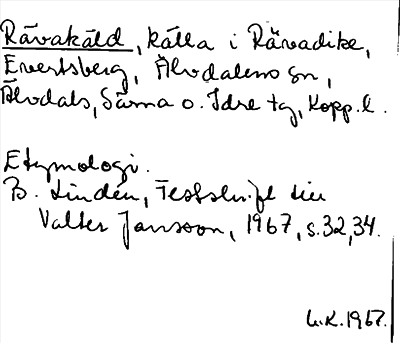 Rävakäld, källa i Rävadike,
Evertsberg, Älvdalens sn,
Älvdals, Särna o. Idre tg, Kopp. l.
Etymologi.
B. Lindén, Festskrift till
Valter Jansson, 1967, s. 32, 34.
L.K. 1967.